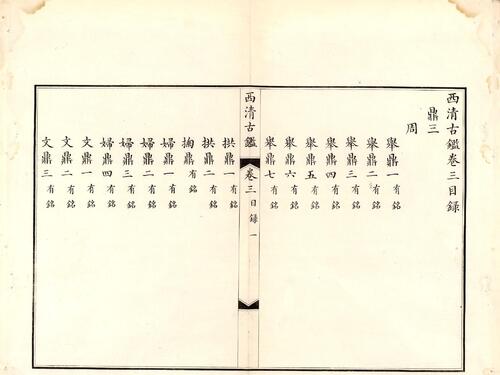 西清古鑑卷三目錄
鼎三
周
舉鼎一有銘
舉鼎二有銘
舉鼎三有銘
舉鼎四有銘
舉鼎五有銘
舉鼎六有銘
舉鼎七有銘
西清古鑑 卷三目錄 一
拱鼎一有銘
拱鼎二有銘
掬鼎有銘
婦鼎一有銘
婦鼎二有銘
婦鼎三有銘
婦鼎四有銘
文鼎一有銘
文鼎二有銘
文鼎三有銘